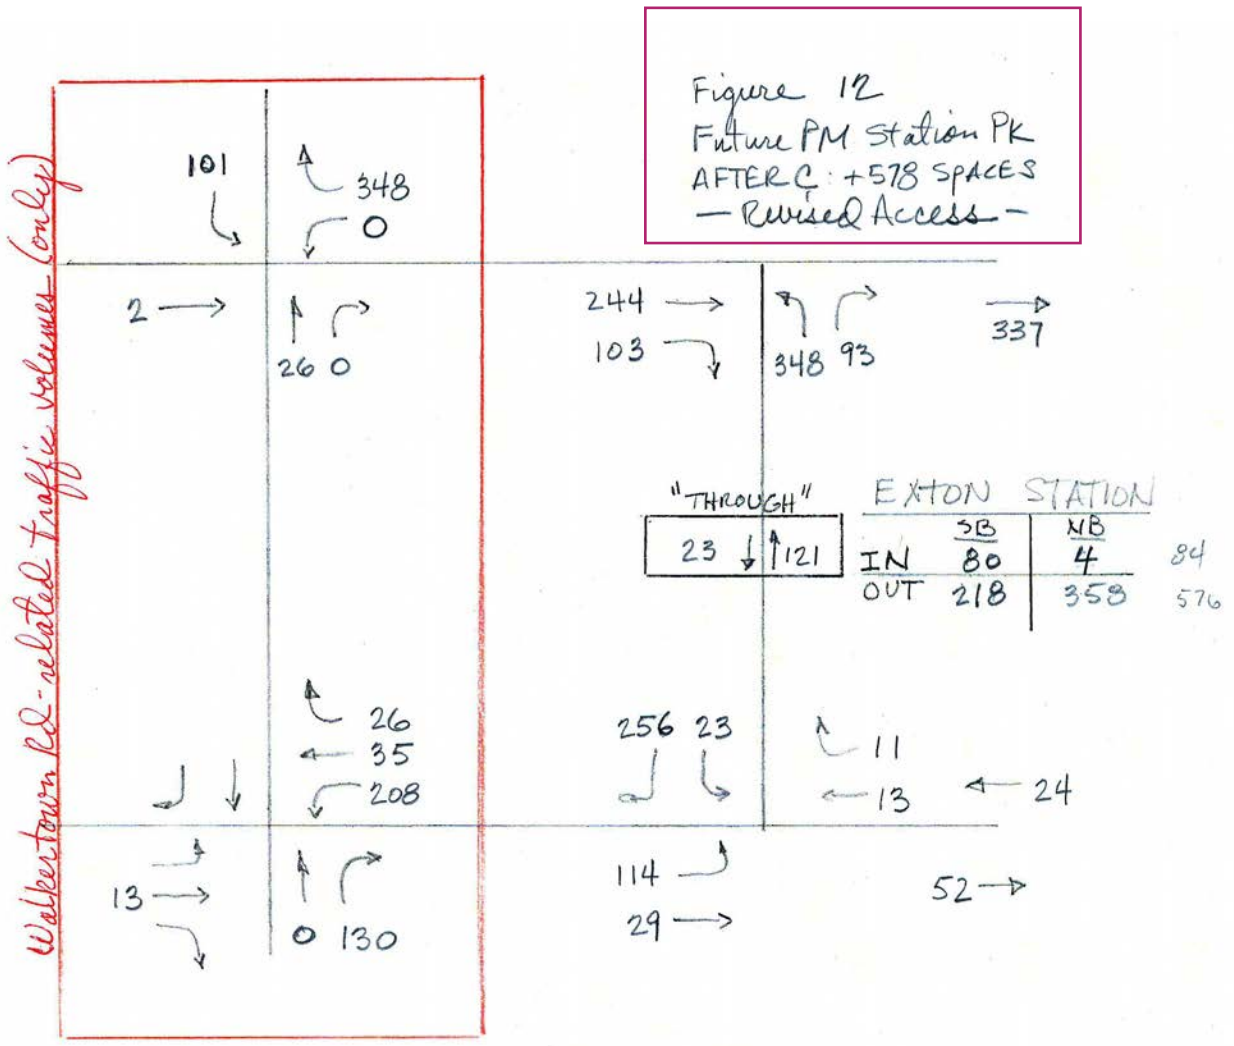 Figure 12
Future PM Station PK
AFTER C: +578 SPACES
- Revised Access -
Walkertown Rd-related traffic volumes (only)
101
348
0
2
26 0
244
103
348 93
337
"THROUGH"
23 121
EXTON STATION
SB NB
IN 80 4 84
OUT 218 358 576
26
35
208
13
0 130
256 23
11
13
24
114
29
52